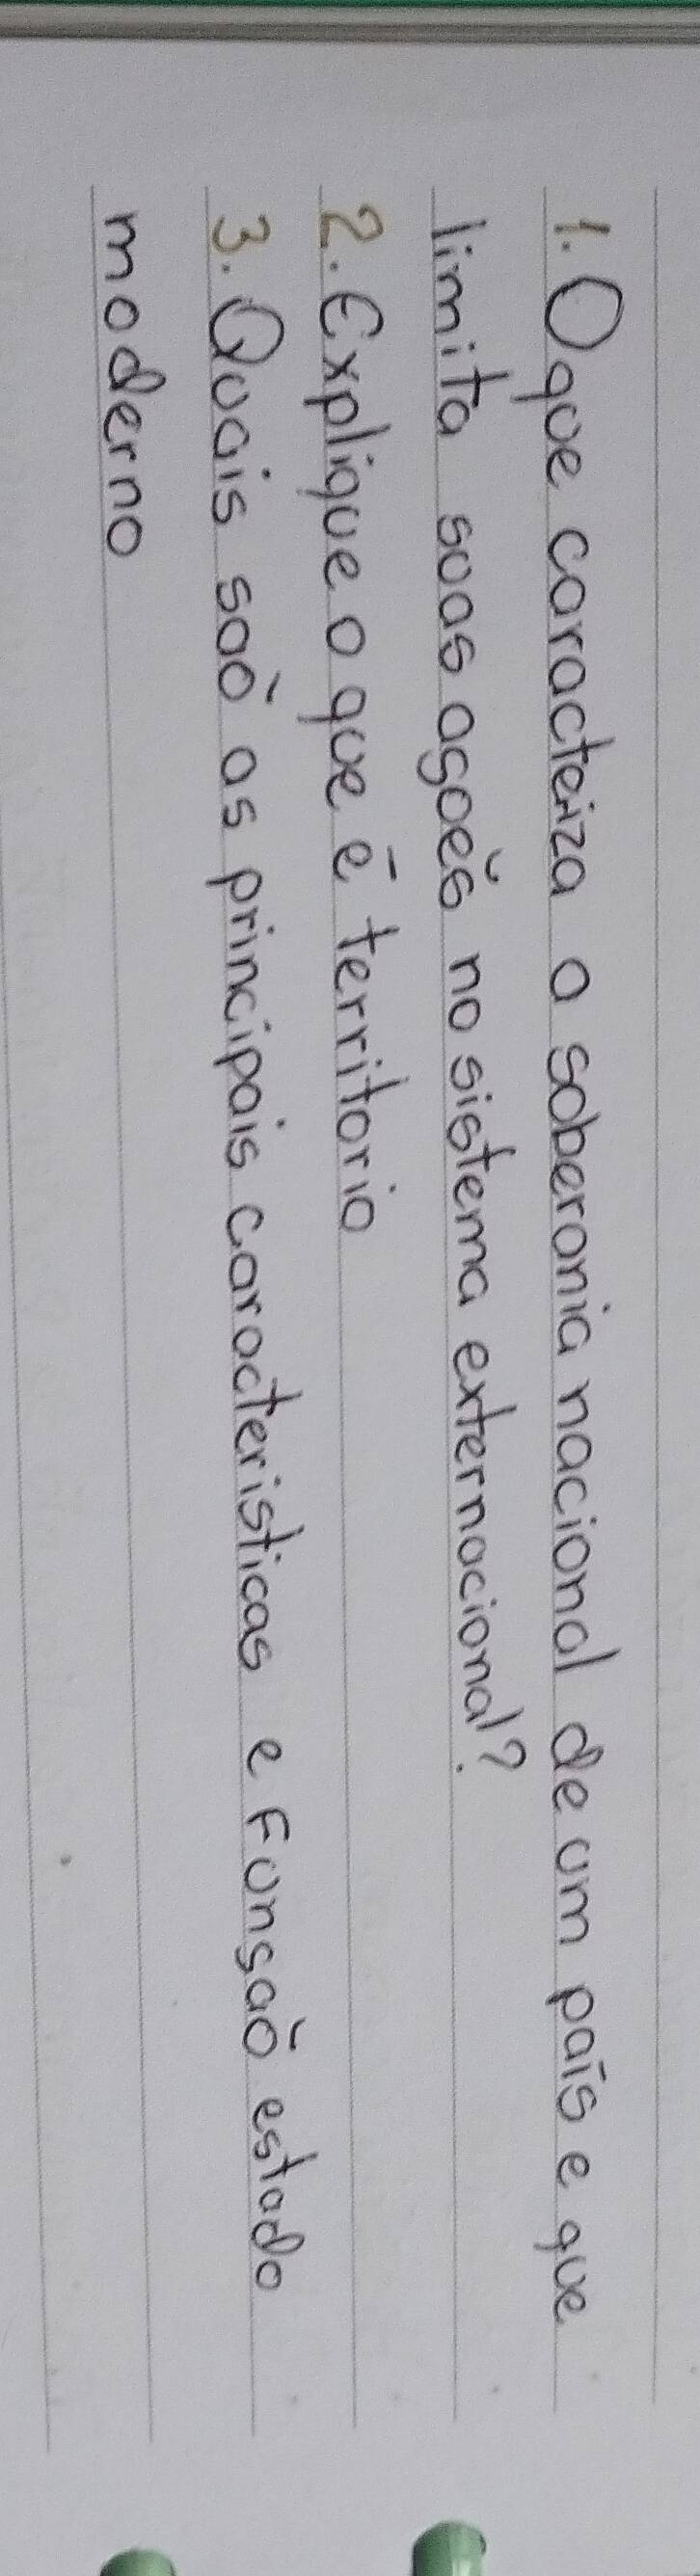 1. O que caracteriza a soberania nacional de um país e que
limita suas asoës no sistema externacional?
2. Explique o que é territorio
3. Quais saõ as principais caracteristicas e Funsaõ estado
moderno